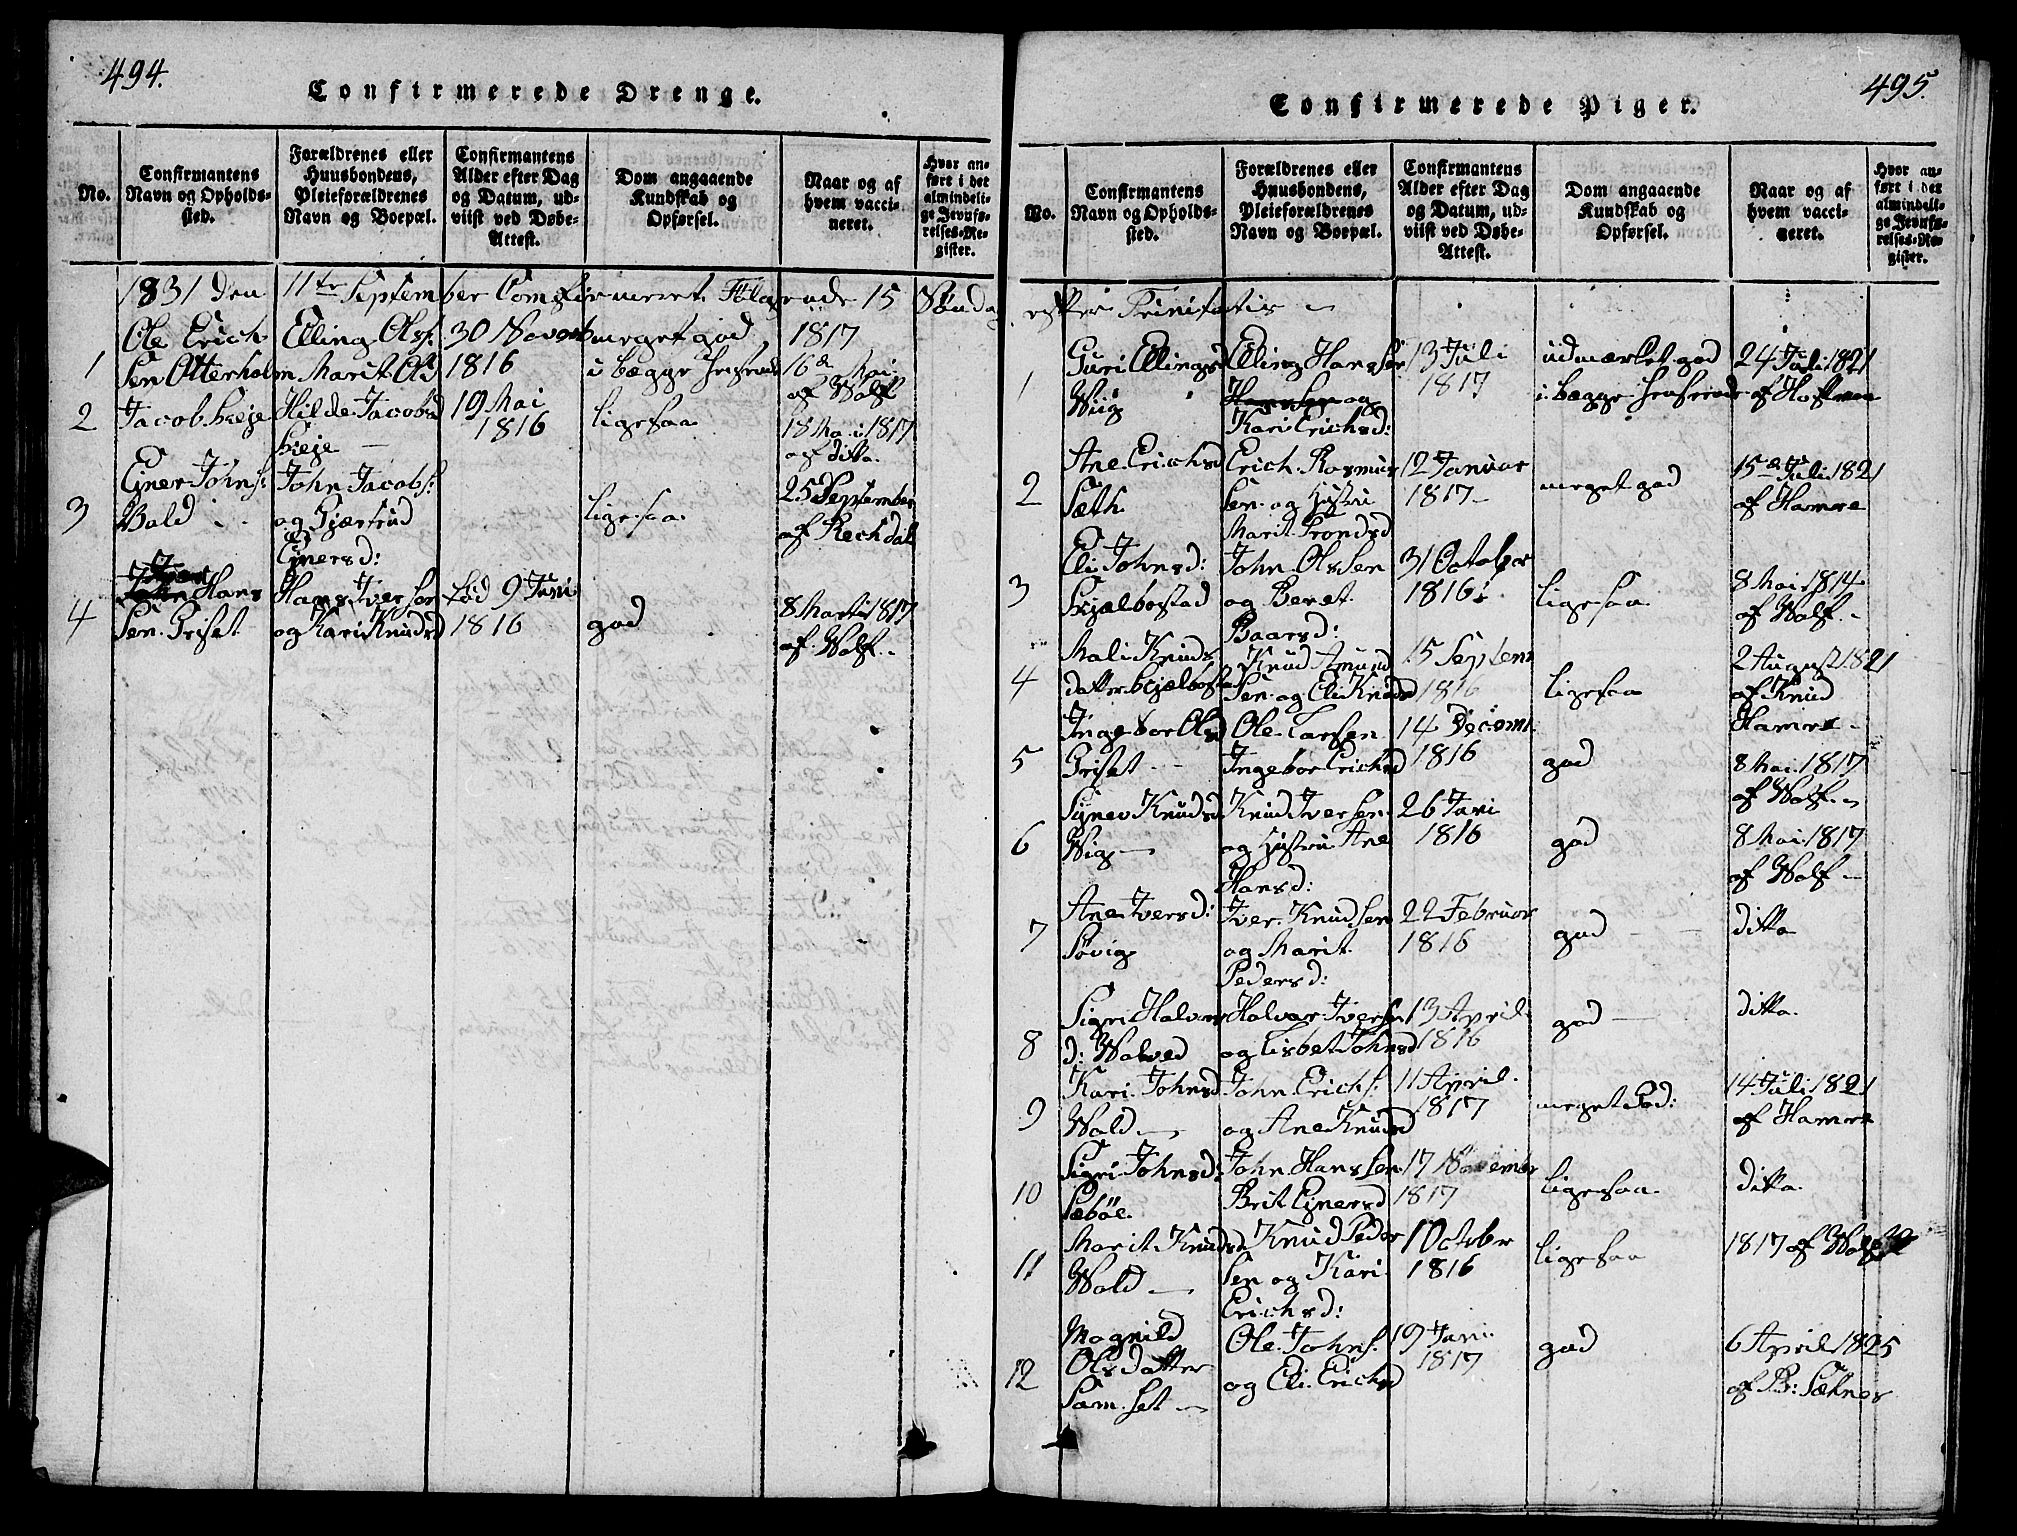 494.
Confirmerede Drenge.
No.
Confirmantens
Navn og Opholds-
sted.
Forældrenes eller
Huusbondens,
Pleieforældrenes
Navn og Boepæl.
Confirmantens
Alder efter Dag
og Datum, ud-
viist ved Døbe-
Attest.
Dom angaaende
Kundskab og
Opførsel.
Naar og af
hvem vacci-
neret.
Hvor an-
ført i det
almindeli-
ge Jevnfø-
relses-Re-
gister.
1831 den 11te September Comfirmeret 15 Søndag
1
Ole Erich
Sen Otterholm
Elling Ols:
Marit Ols
30 Novemb
1816
meget god
i begge Henseende
1817
16de Mai
af Wolf
2
Jacob Heje
Hilde Jacobsd
Heje
19 Mai
1816
ligesaa
18 Mai 1817
af ditto
3
Ejner Johns:
Vold
John Jacobs:
og Gjærtrud
Ejnersd:
ligesaa
25 September
af Rechdal
4
Iver Hans
Sen Griset
Hans Iversen
og Kari Knudsd
Fød 9 Juni
1816
god
8 Marts 1817
af Wolf
495.
Confirmerede Piger.
No.
Confirmantens
Navn og Opholds-
sted.
Forældrenes eller
Huusbondens,
Pleieforældrenes
Navn og Boepæl.
Confirmantens
Alder efter Dag
og Datum, ud-
viist ved Døbe-
Attest.
Dom angaaende
Kundskab og
Opførsel.
Naar og af
hvem vacci-
neret.
Hvor an-
ført i det
almindeli-
ge Jevnfø-
relses-Re-
gister.
efter Trinitatis
1
Guri Ellingsd
Wiig
Elling Hansen
Hansen og
Kari Erichsd:
13 Juli
1817
udmærket god
i begge Henseende
24 Juli 1821
af Hoffman
2
Ane Erichsd
Sæth
Erich Rasmus
Sen og Hustru
Marit Trondsd
12 Januar
1817
meget god
15de Juli 1821
af Hamre
3
Eli Johnsd:
Skjælbostad
John Olssen
og Beret
Baarsd:
31 October
1816
ligesaa
8 Mai 1814
af Wolf
4
Mali Knuds
datter Skjælbosta
Knud Amund
Sen og Eli Knudsd
15 Septem
1816
ligesaa
2 August 1821
af Knud
Hamre
5
Ingebor Olsd
Griset
Ole Larsen
Ingebor Erichsd
14 Decemb
1816
god
8 Mai 1817
af Wolf
6
Synev Knudsd
Wig
Knud Iversen
og Hustru Ane
Hansd:
26 Juni
1816
god
8 Mai 1817
af Wolf
7
Ane Iversd:
Søvig
Iver Knudsen
og Marit
Pedersd:
22 Februar
1816
god
ditto
8
Sigri Halvors
d: Wolved
Halvor Iversen
og Lisbet Johnsd
13 April
1816
god
ditto
9
Kari Johnsd
Wold
John Erichs:
og Ane Knudsd
11 April
1817
meget God:
14 Juli 1821
af Hamre
10
Sigri Johnsd:
Sæbøe
John Hansen
Brit Ejnersd
17 November
1817
ligesaa
ditto
11
Marit Knudsd
Wold
Knud Peder
Sen og Kari
Erichsd:
1 Octobr
1816
ligesaa
1817 af Wolf
12
Magnild
Olsdatter
Sam.set
Ole Johns:
og Eli Erichsd
19 Juni
1817
god
6 April 1825
af B: Sætnes